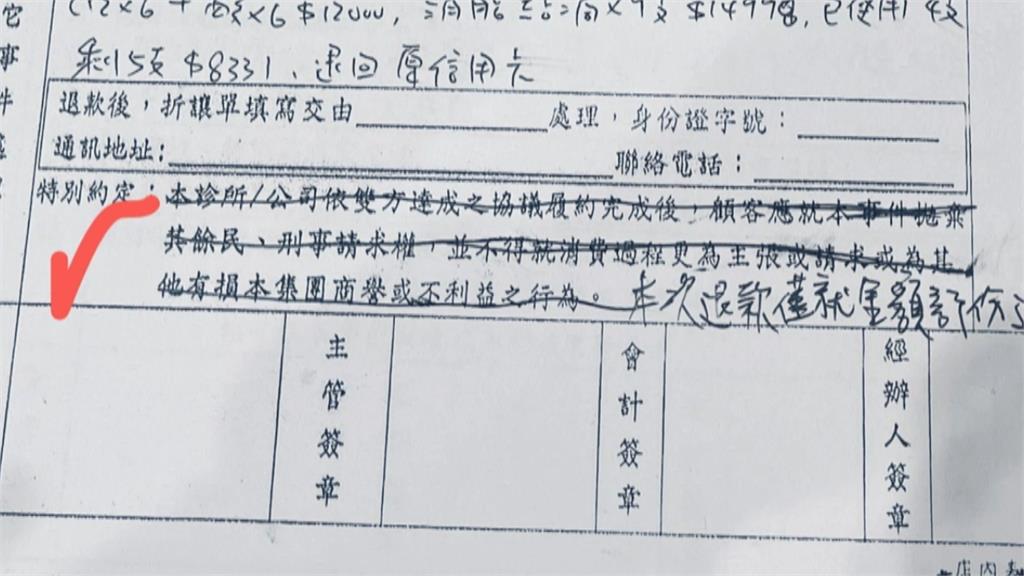 ×6 $12000,
剩5頁 $8331、退回原信用卡
退款後，折讓單填寫交由 處理，身份證字號：
通訊地址: 聯絡電話：
特別約定：本診所/公司依雙方達成之協議履約完成後，顧客應就本事件拋棄
其餘民、刑事請求權，並不得就消費過程更為主張或請求或為其
他有損本集團商譽或不利益之行為。本次退款僅就金額部份
主管簽章
會計簽章
經辦人簽章
店內